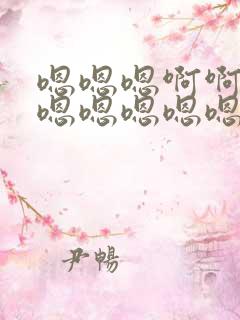 嗯嗯嗯啊啊
嗯嗯嗯嗯嗯
尹暢